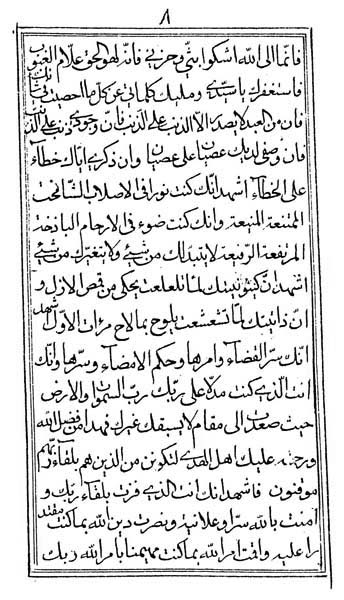 ٨
فانما الى الله اشكوا بثي وحزني فانه لهو الحق علام الغيوب
فاستغفرك يا سيدي ومليك كلما بي عن كل ما احصيت في
فان من العبد لا يصدر الا الذنب على الذنب فان وجودي ذنب على الذنب
فان وصفي لديك عصيان على عصيان وان ذكري اياك خطآء
على الخطآء اشهد انك كنت نورا في الاصلاب الشامخة
الممتنعة المنيعة وانك كنت ضوء في الارحام الباذخة
المرتفعة الرفيعة لا يتبدلك من شيئ ولا يتغيرك من شيئ
اشهد ان كينونيتك لما تلعلعت يحكي من قمص الازل و
ان ذاتيتك لما تشعشعت يلوح بما لاح مرات الاول اشهد
انك سر القضآء وامرها وحكم الامضآء وسرها وانك
انت الذي كنت مدلا على ربك رب السموات والارض
حيث صعدت الى مقام لا يسبقك غيرك فهذا من فضل الله
ورحمته عليك اهل الهدى لتكونن من الذين هم بلقآء ربهم
موقنون فاشهد انك انت الذي فزت بلقآء ربك و
امنت بالله سرا وعلانية ونصرت دين الله بما كنت مقتد
را عليه واقمت امر الله بما كنت مهيمنا بامر الله ربك